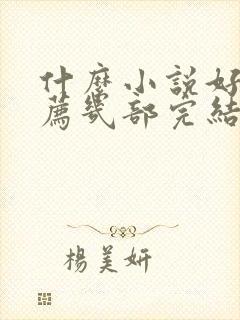 什麼小說好
薦幾部完結
楊美妍